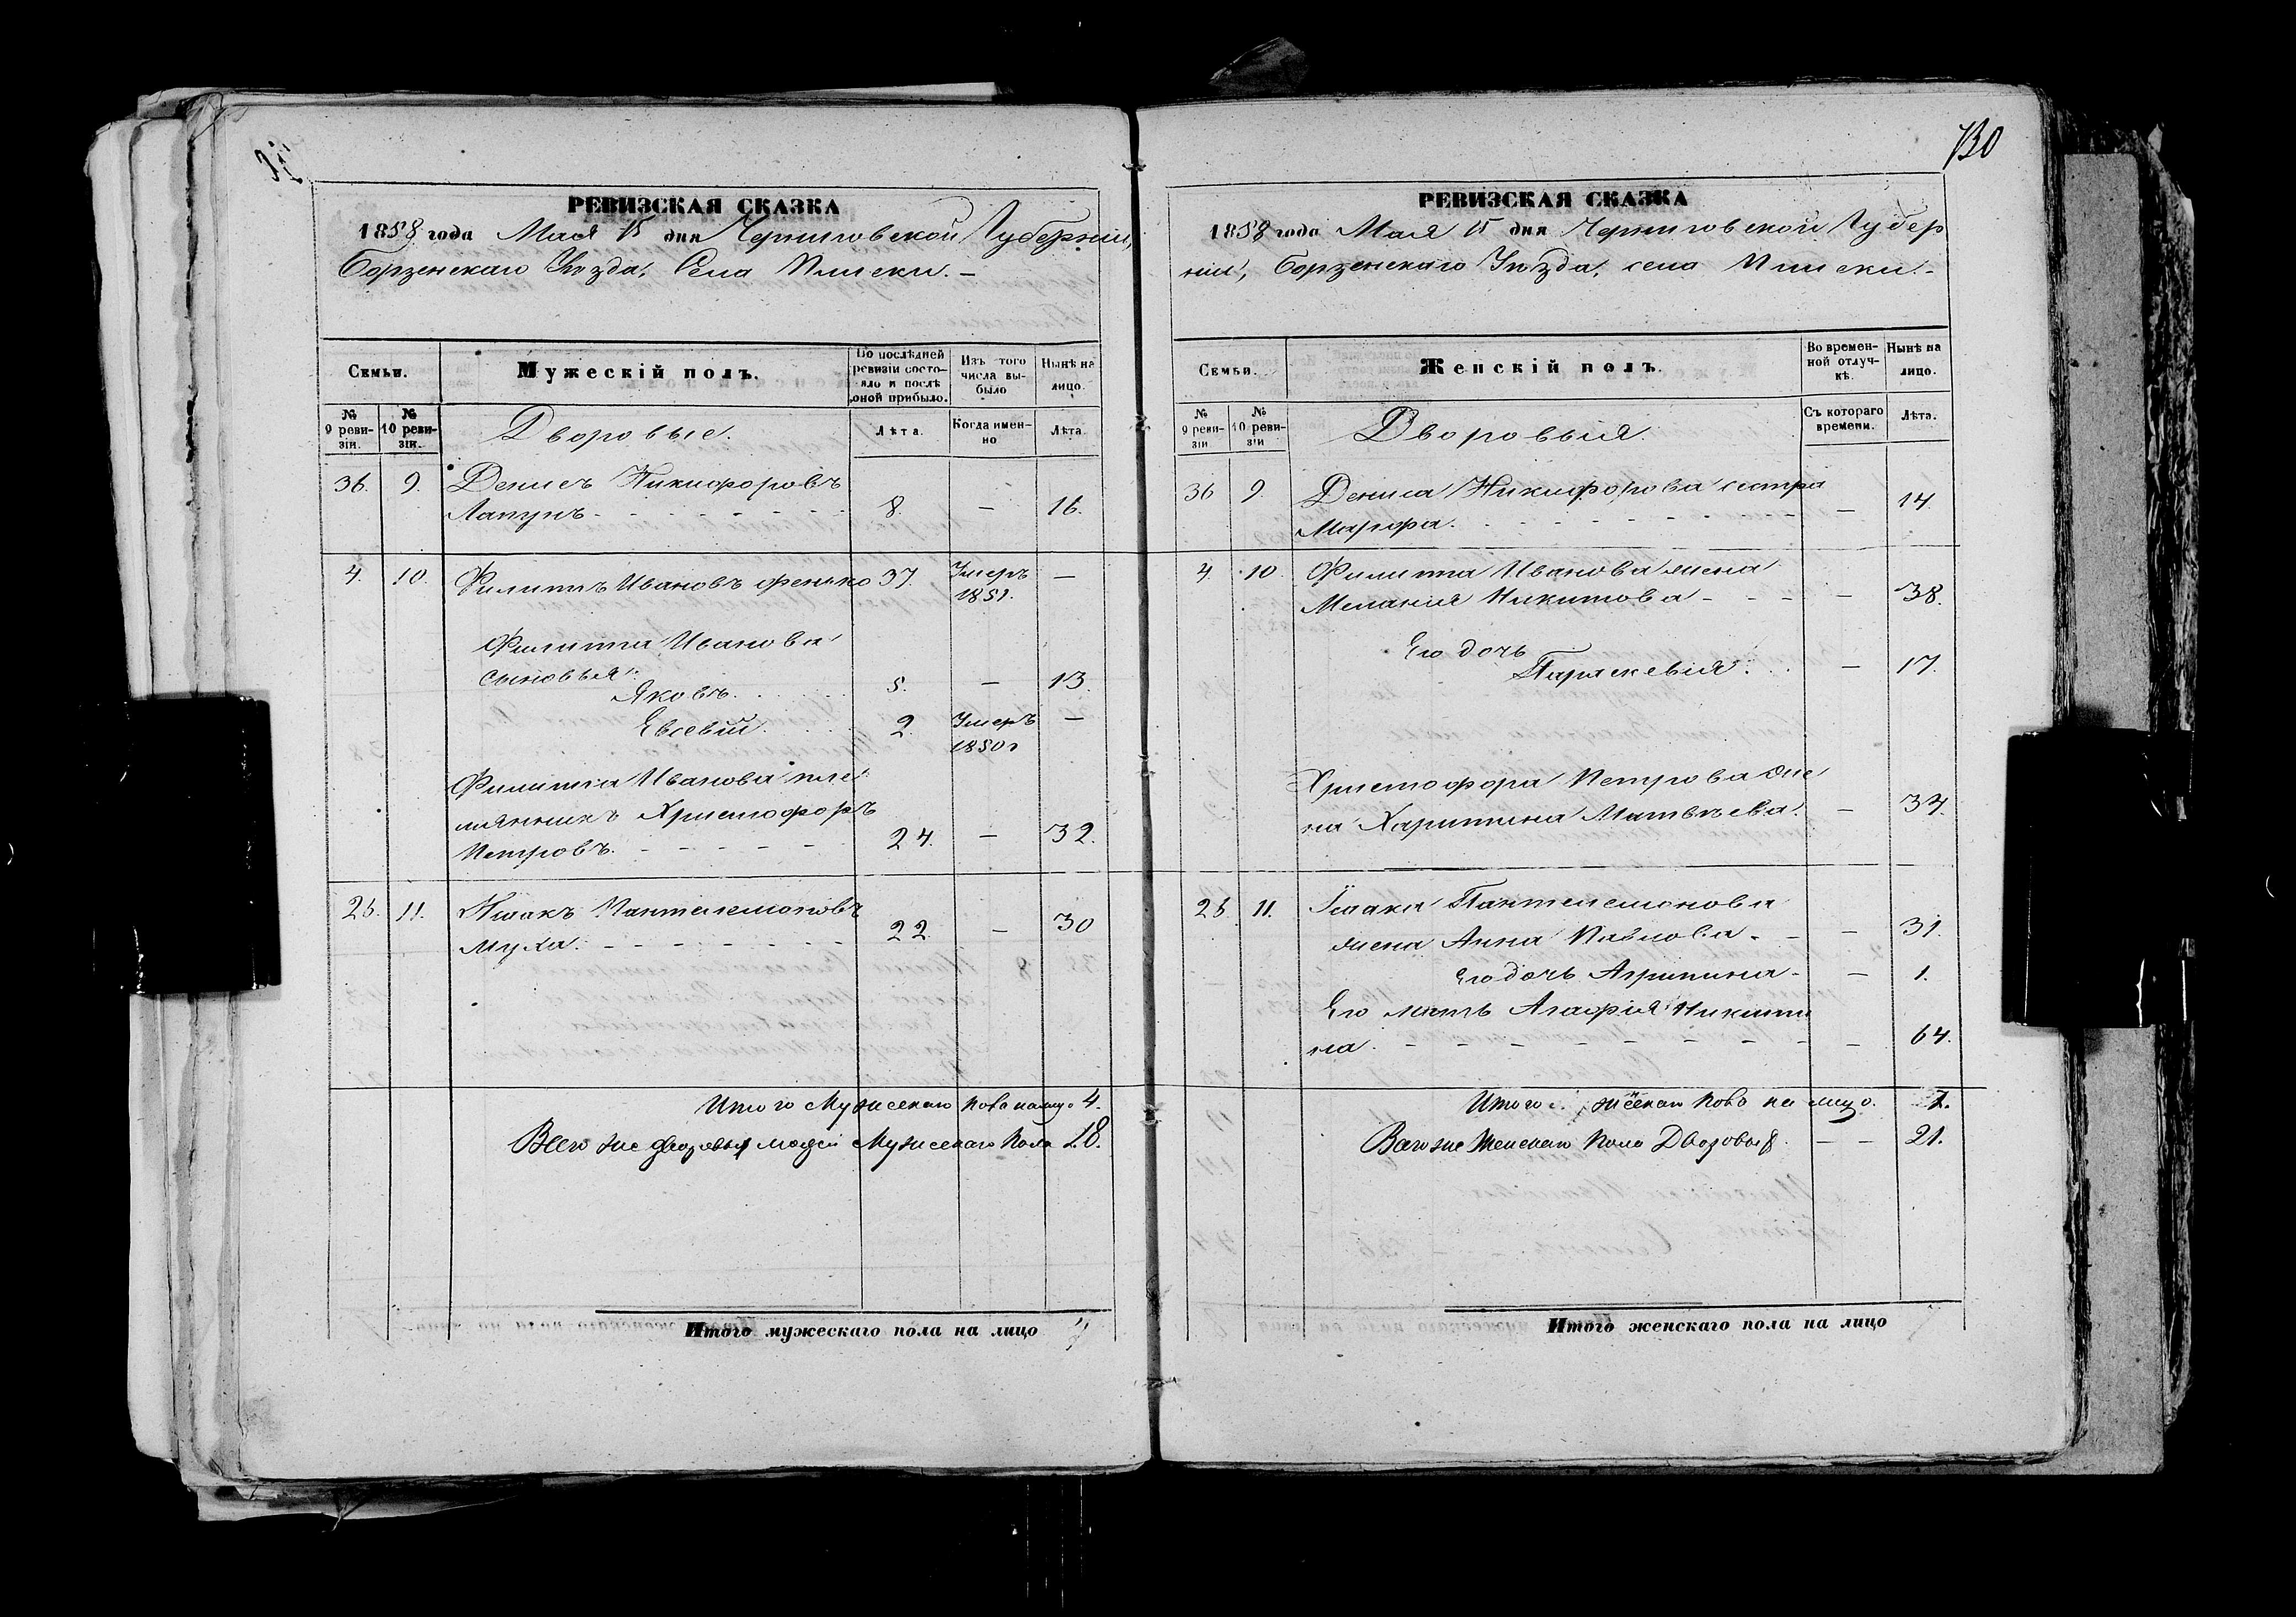 РЕВИЗСКАЯ СКАЗКА
1858 года Мая 15 дня Черниговской Губерніи,
Борзенскаго Уѣзда, Села Плиски. –
Семьи.
Мужескій полъ.
Во послѣдней ревизіи состояло и послѣ оной прибыло.
Изъ того числа выбыло
Нынѣ на лицо.
№ 9 ревизіи.
№ 10 ревизіи.
Дворовые.
Лѣта.
Когда именно
Лѣта.
36. 9. Денисъ Никифоровъ
Лапунъ - - - 8. – 16.
4. 10. Филиппъ Ивановъ Фенько 37. Умеръ 1851. –
Филиппа Иванова
сыновья:
Яковъ. 5. – 13.
Евсевій. 2. Умеръ 1850 г –
Филиппа Иванова пле
мянникъ Христофоръ
Петровъ. - - - 24. – 32.
26. 11. Исаакъ Пантелемоновъ
Муха. - - - 22. – 30
Итого Мужескаго пола налицо 4.
Всего же дворовыхъ людей Мужескаго пола 18.
Итого мужескаго пола на лицо 4
730
РЕВИЗСКАЯ СКАЗКА
1858 года Мая 15 дня Черниговской Губер
ніи, Борзенскаго Уѣзда, села Плиски. –
Семьи.
Женскій полъ.
Во временной отлучкѣ.
Нынѣ на лицо.
№ 9 ревизіи
№ 10 ревизіи
Дворовыя.
Съ котораго времени.
Лѣта.
36 9. Дениса Никифорова сестра
Марфа. - - - – 14.
4. 10. Филиппа Иванова жена
Мелания Никитова - - - – 38.
Его дочь
Параскевія. – 17.
Христофора Петрова же
на Харитина Матвѣева. – 34.
26. 11. Ісаака Пантелемонова
жена Анна Павлова. - – 31.
Его дочь Агрипина - – 1.
Его мать Агафія Никити
на. - - - – 64.
Итого женскаго пола на лицо. 7.
Всего же Женскаго пола Дворовыхъ – – 21.
Итого женскаго пола на лицо 7